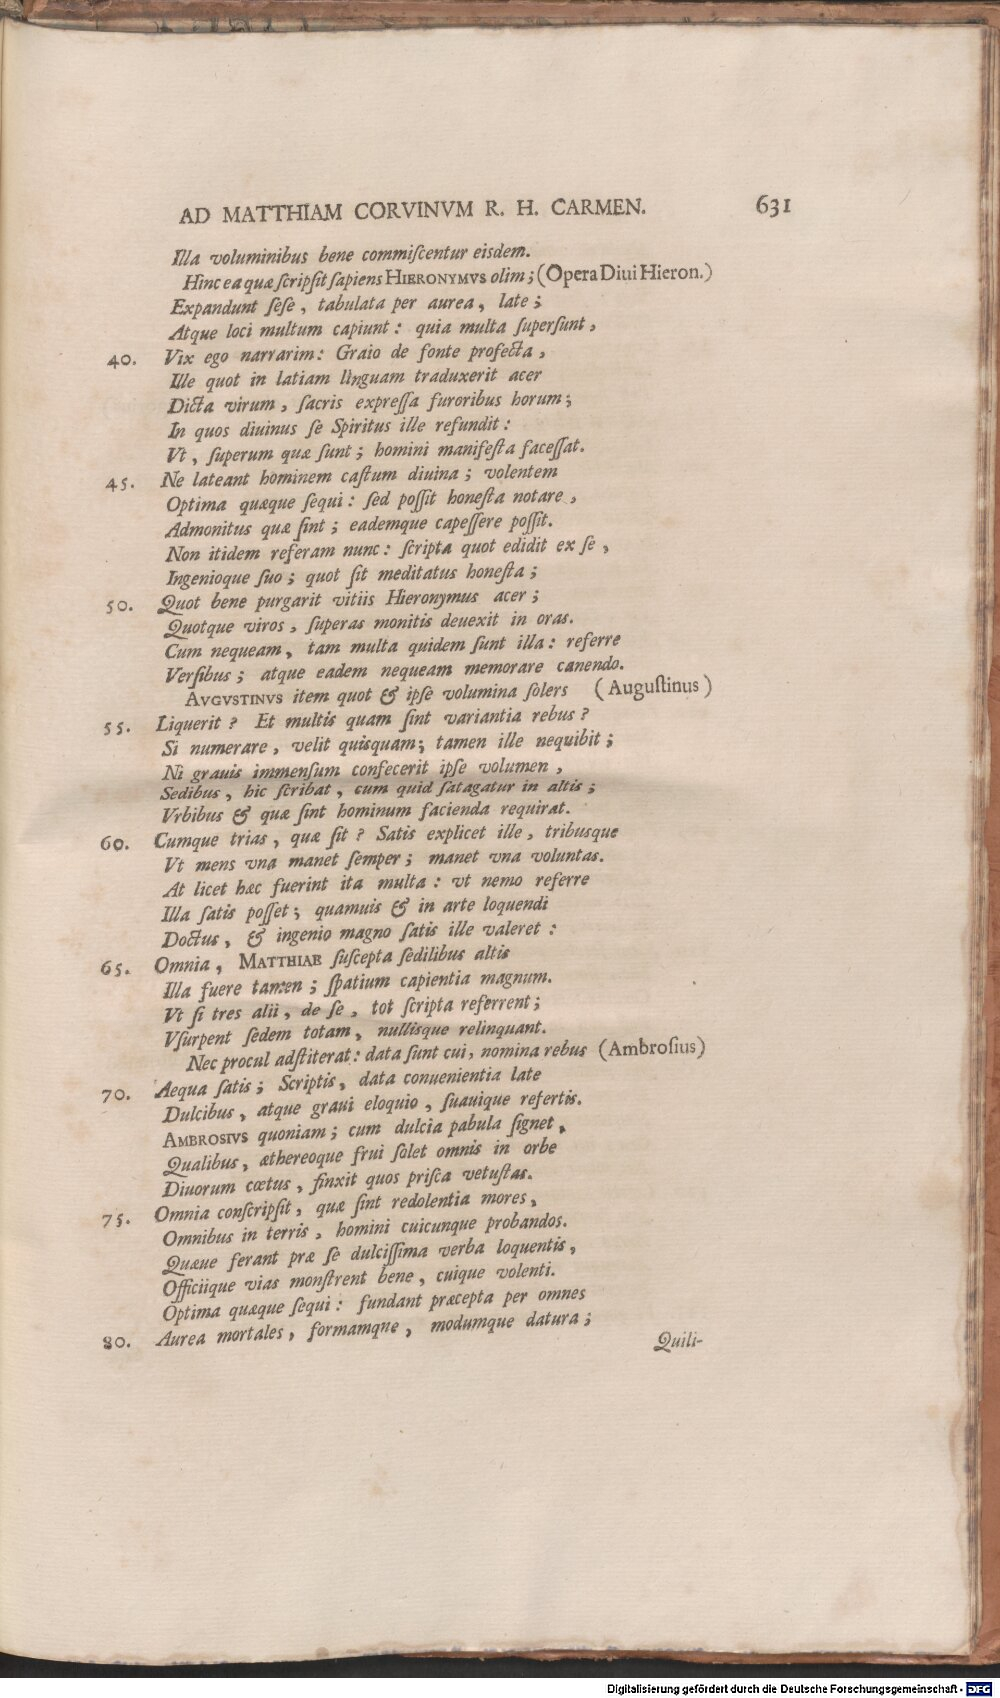 AD MATTHIAM CORVINVM R. H. CARMEN. 631
Illa voluminibus bene commiſcentur eisdem.
Hinc ea quæ ſcripſit ſapiens HIERONYMVS olim; (Opera Diui Hieron.)
Expandunt ſeſe, tabulata per aurea, late;
Atque loci multum capiunt: quia multa ſuperſunt,
40. Vix ego narrarim: Graio de fonte profecta,
Ille quot in latiam linguam traduxerit acer
Dicta virum, ſacris expreſſa furoribus horum;
In quos diuinus ſe Spiritus ille refundit:
Vt, ſuperum quæ ſunt; homini manifeſta faceſſat.
45. Ne lateant hominem caſtum diuina; volentem
Optima quæque ſequi: ſed poſſit honeſta notare,
Admonitus quæ ſint; eademque capeſſere poſſit.
Non itidem referam nunc: ſcripta quot edidit ex ſe,
Ingenioque ſuo; quot ſit meditatus honeſta;
50. Quot bene purgarit vitiis Hieronymus acer;
Quotque viros, ſuperas monitis deuexit in oras.
Cum nequeam, tam multa quidem ſunt illa: referre
Verſibus; atque eadem nequeam memorare canendo.
AVGVSTINVS item quot & ipſe volumina ſolers (Auguſtinus)
55. Liquerit? Et multis quam ſint variantia rebus?
Si numerare, velit quisquam; tamen ille nequibit;
Ni grauis immenſum confecerit ipſe volumen,
Sedibus, hic ſcribat, cum quid ſatagatur in altis;
Vrbibus & quæ ſint hominum facienda requirat.
60. Cumque trias, quæ ſit? Satis explicet ille, tribusque
Vt mens vna manet ſemper; manet vna voluntas.
At licet hæc fuerint ita multa: vt nemo referre
Illa ſatis poſſet; quamuis & in arte loquendi
Doctus, & ingenio magno ſatis ille valeret:
65. Omnia, MATTHIAE ſuſcepta ſedilibus altis
Illa fuere tamen; ſpatium capientia magnum.
Vt ſi tres alii, de ſe, tot ſcripta referrent;
Vſurpent ſedem totam, nullisque relinquant.
Nec procul adſtiterat: data ſunt cui, nomina rebus (Ambroſius)
70. Aequa ſatis; Scriptis, data conuenientia late
Dulcibus, atque graui eloquio, ſuauique refertis.
AMBROSIVS quoniam; cum dulcia pabula ſignet,
Qualibus, æthereoque frui ſolet omnis in orbe
Diuorum cœtus, finxit quos priſca vetuſtas.
75. Omnia conſcripſit, quæ ſint redolentia mores,
Omnibus in terris, homini cuicunque probandos.
Quæue ferant præ ſe dulciſſima verba loquentis,
Officiique vias monſtrent bene, cuique volenti.
Optima quæque ſequi: fundant præcepta per omnes
80. Aurea mortales, formamqne, modumque datura;
Quili-
Digitalisierung gefördert durch die Deutsche Forschungsgemeinschaft - DFG